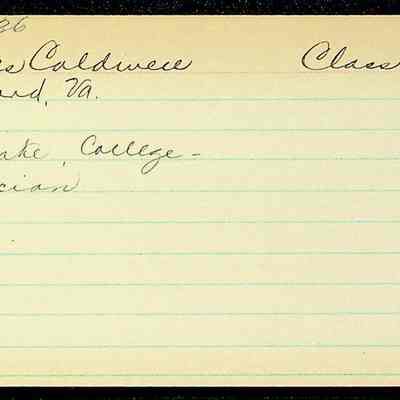 36
es Coldwell Class
ord, Va.
oke, College-
cian